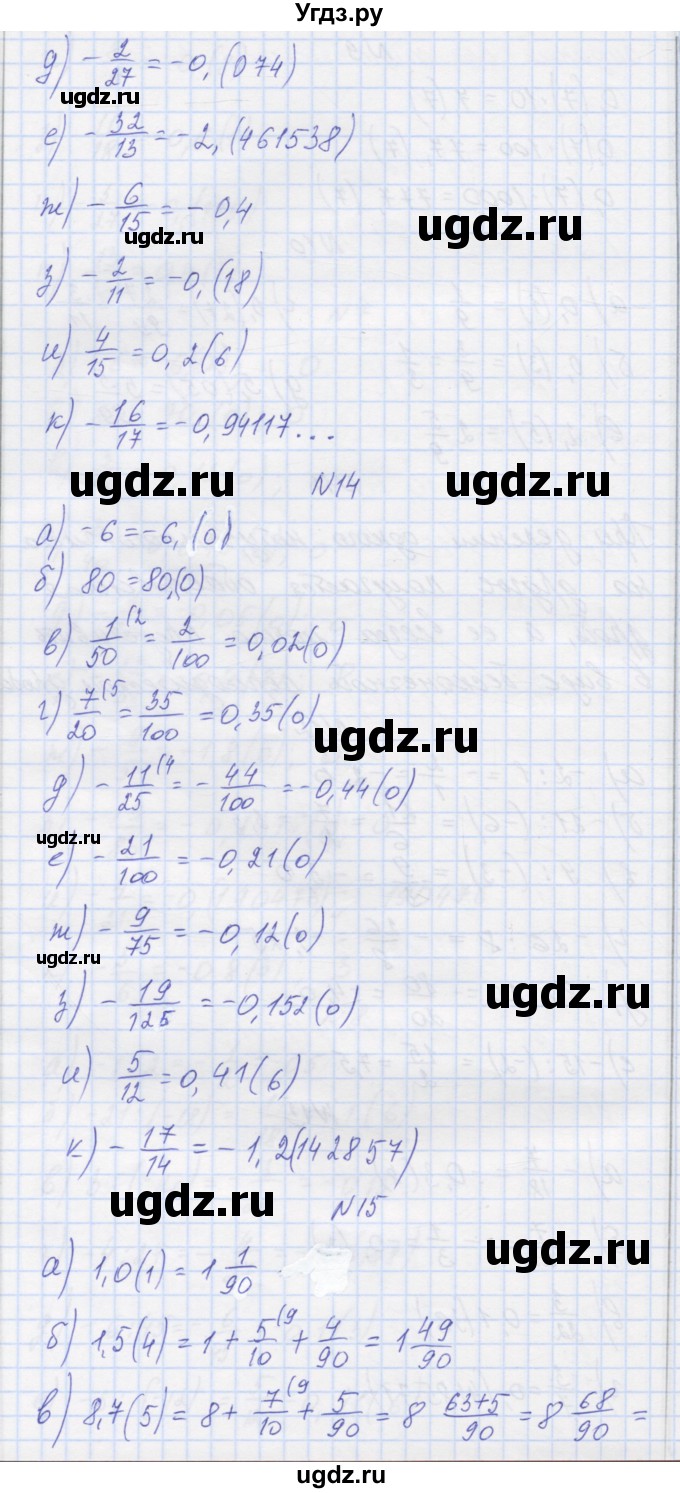 Угдз.ру
д) -2/27 = -0,(074)
ugdz.ru
е) -32/13 = -2,(461538)
ж) -6/15 = -0,4
ugdz.ru
ugdz.ru
з) -2/11 = -0,(18)
и) 4/15 = 0,2(6)
ugdz.ru
к) -16/17 = -0,94117...
ugdz.ru №14 ugdz.ru
а) -6 = -6,(0)
б) 80 = 80,(0)
в) 1/50 (2 = 2/100 = 0,02(0)
г) 7/20 (5 = 35/100 = 0,35(0)
ugdz.ru
д) -11/25 (4 = -44/100 = -0,44(0)
ugdz.ru
е) -21/100 = -0,21(0)
ж) -9/75 = -0,12(0)
ugdz.ru
з) -19/125 = -0,152(0)
ugdz.ru
и) 5/12 = 0,41(6)
к) -17/14 = -1,2(142857)
ugdz.ru №15
ugdz.ru
а) 1,0(1) = 1 1/90
б) 1,5(4) = 1 + 5/10 (9 + 4/90 = 1 49/90
ugdz.ru
в) 8,7(5) = 8 + 7/10 (9 + 5/90 = 8 63+5/90 = 8 68/90 =
ugdz.ru